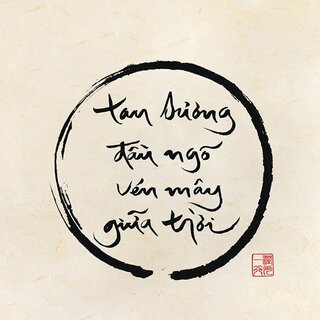 tan sương
đầu ngõ
vén mây
giữa trời